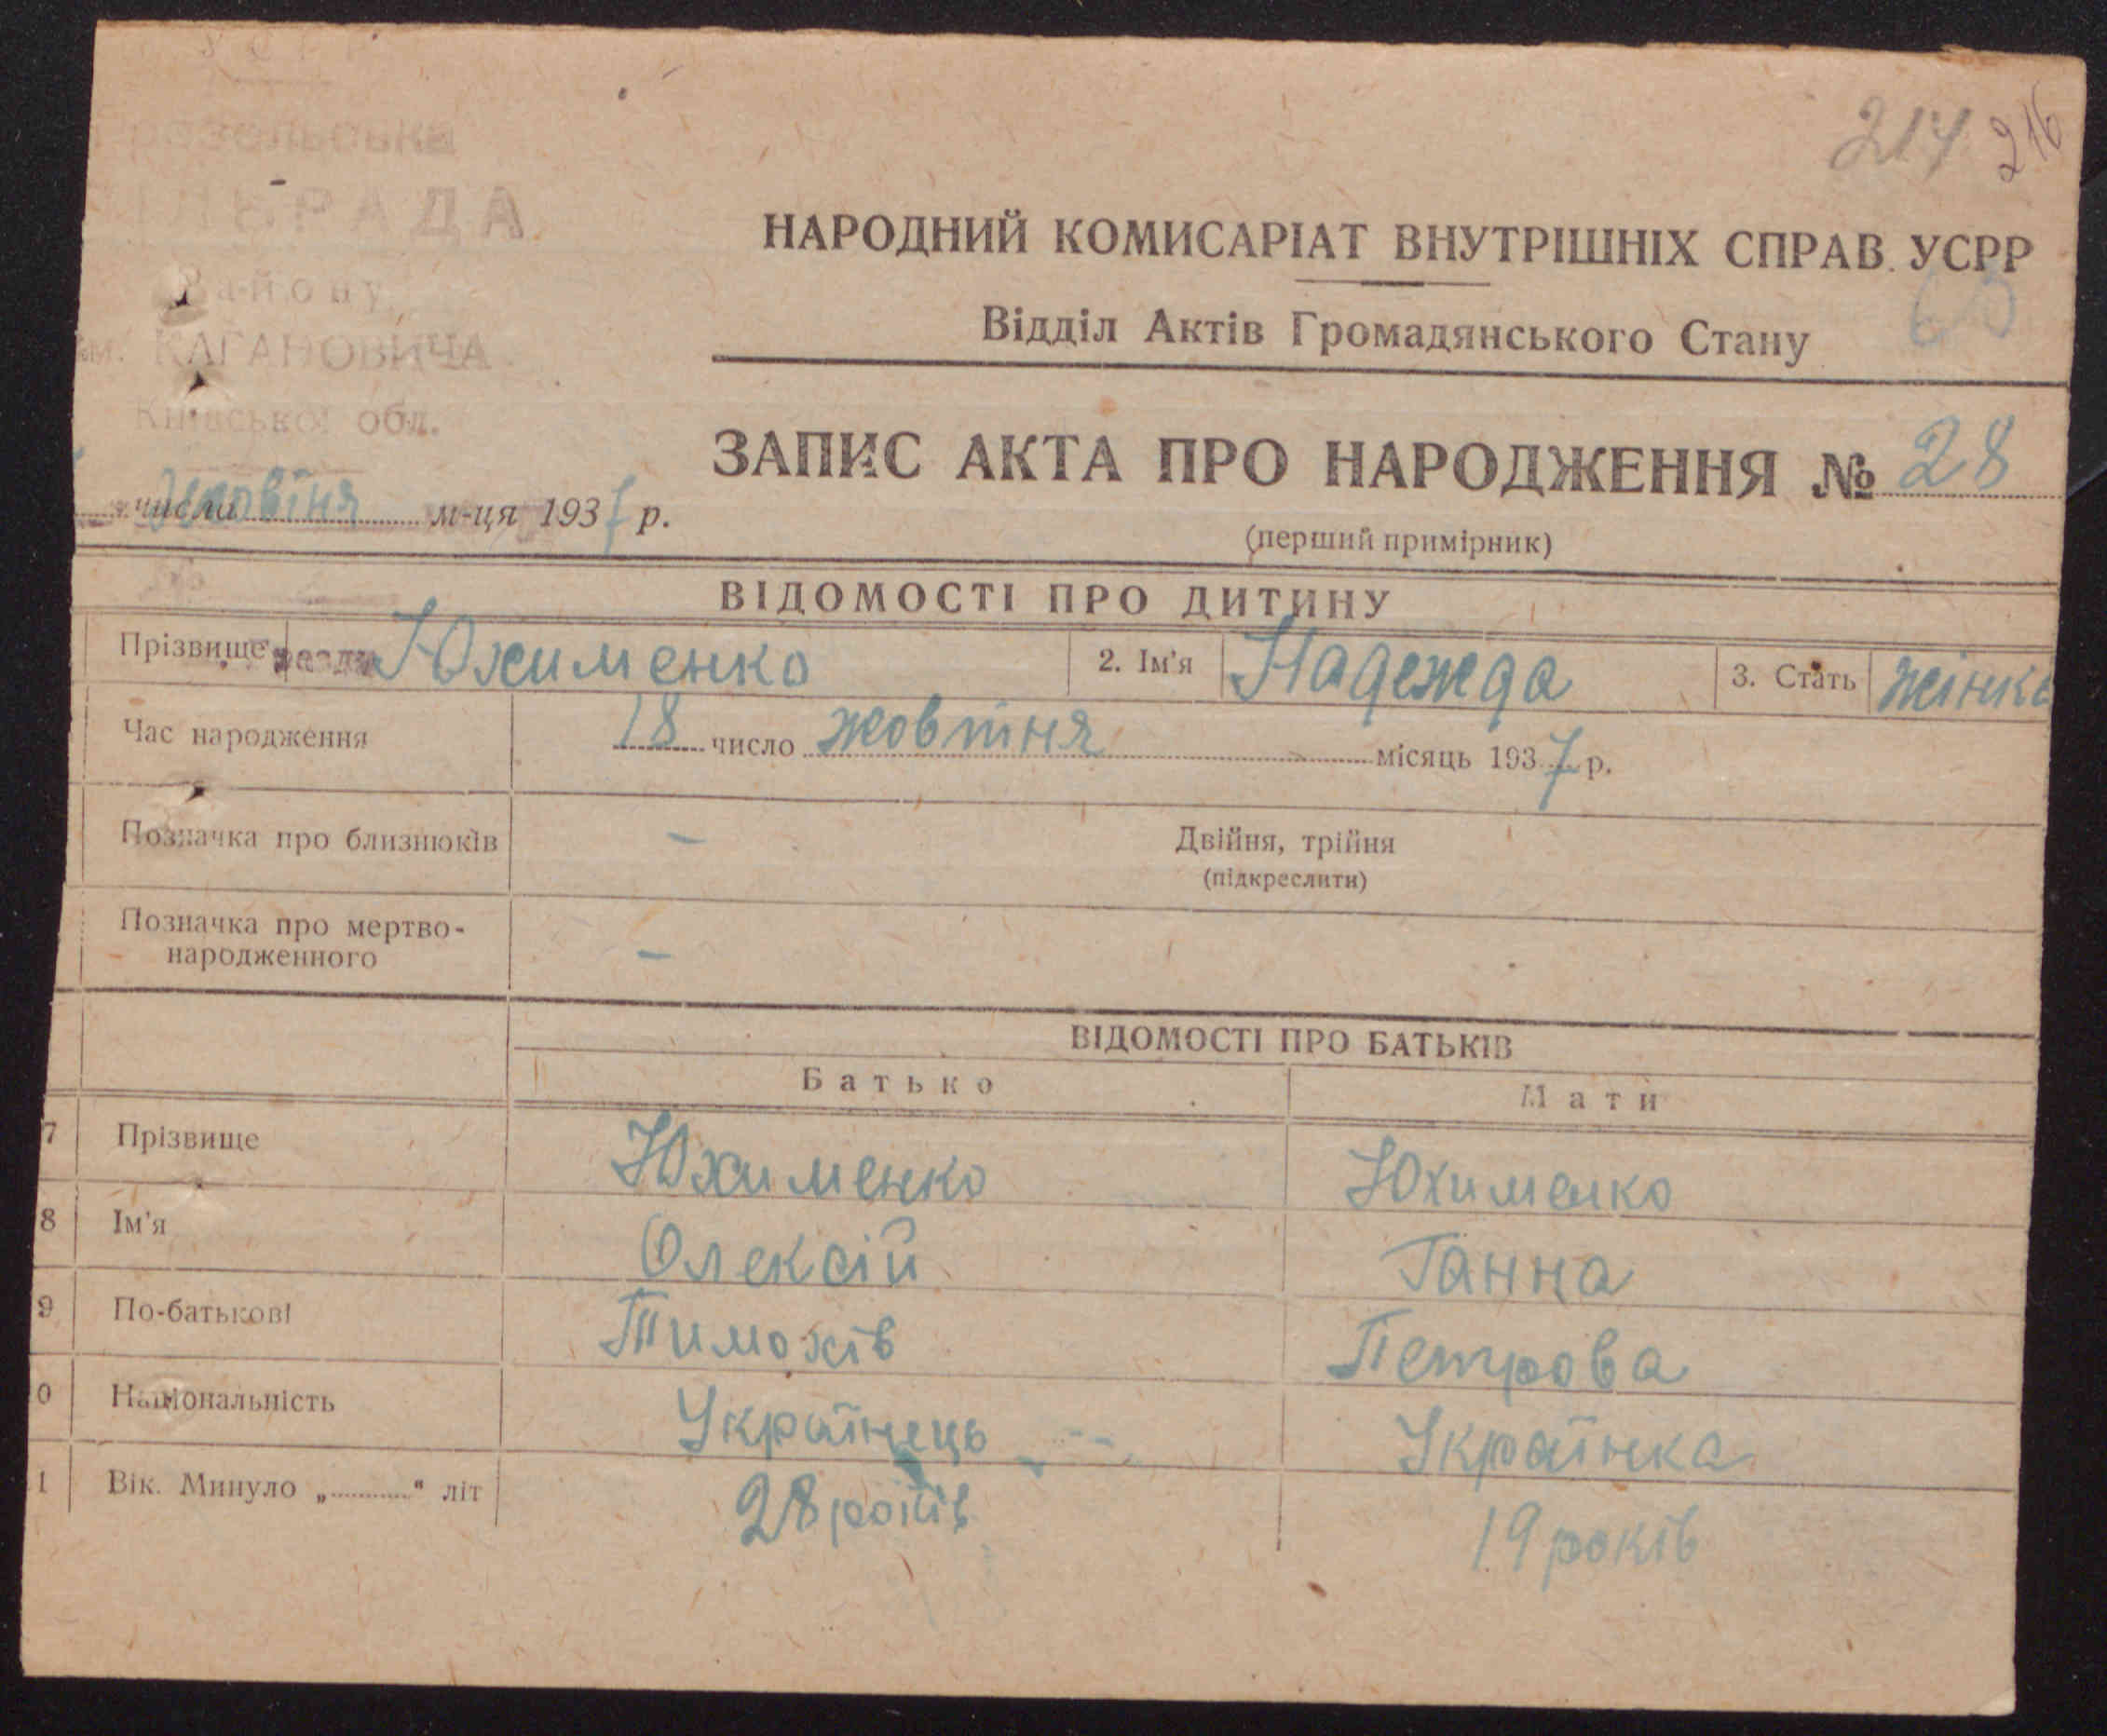 217 216
РАДА
Району
ім. КАГАНОВИЧА
Київської обл.
НАРОДНИЙ КОМИСАРІАТ ВНУТРІШНІХ СПРАВ УСРР
Відділ Актів Громадянського Стану
ЗАПИС АКТА ПРО НАРОДЖЕННЯ № 28
числа м-ця 1937 р.
(перший примірник)
ВІДОМОСТІ ПРО ДИТИНУ
Прізвище Юхименко 2. Ім'я Надежда 3. Стать жінка
Час народження 18 число жовтня місяць 1937 р.
Позначка про близнюків – Двійня, трійня
(підкреслити)
Позначка про мертво-
народженного –
ВІДОМОСТІ ПРО БАТЬКІВ
Батько Мати
7 Прізвище Юхименко Юхименко
8 Ім'я Олексій Ганна
9 По-батькові Тимохів Петрова
0 Національність Українець Українка
1 Вік. Минуло „ “ літ 28 років 19 років